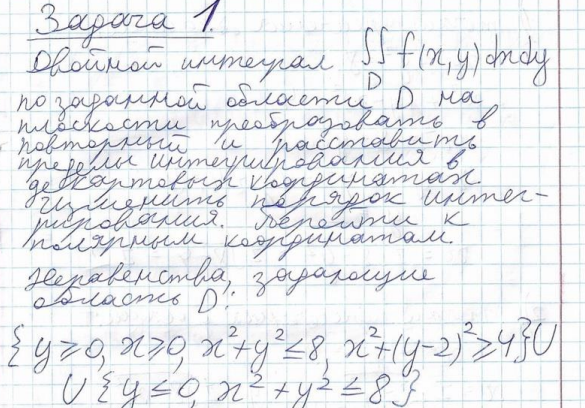 Задача 1.
Двойной интеграл ∬ f(x,y) dxdy
D
по заданной области D на
плоскости преобразовать в
повторный и расставить
пределы интегрирования в
декартовых координатах.
Изменить порядок интег-
рирования. Перейти к
полярным координатам.
Неравенства, задающие
область D:
{y≥0, x≥0, x²+y²≤8, x²+(y-2)²≥4}∪
∪{y≤0, x²+y²≤8}